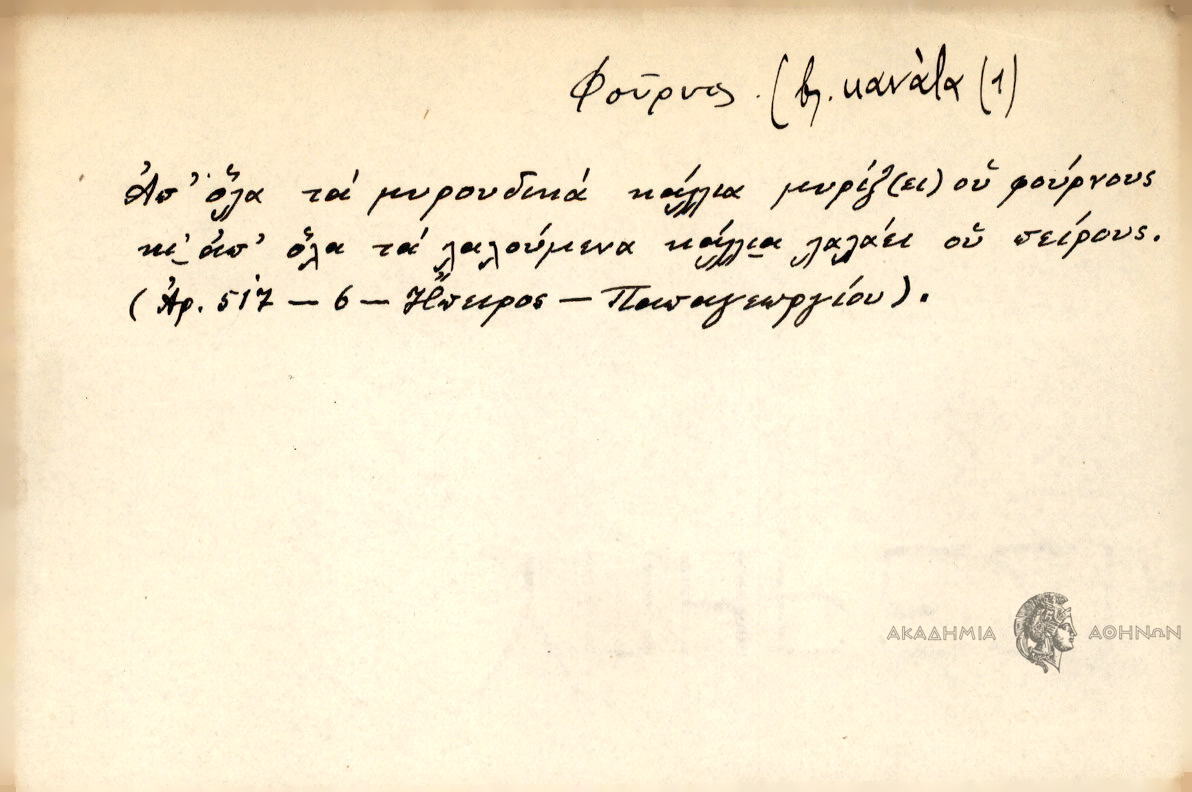 Φοῦρνος. (βλ. κανάτα (1)
Ἀπ' ὅλα τά μυρουδικά κάλλια μυρίζ(ει) οὗ φούρνους
κι ἀπ' ὅλα τά λαλούμενα κάλλια λαλάει οὗ πείρους.
(Ἀρ. 517 – 6 – Ἤπειρος – Παπαγεωργίου).
ΑΚΑΔΗΜΙΑ ΑΘΗΝΩΝ